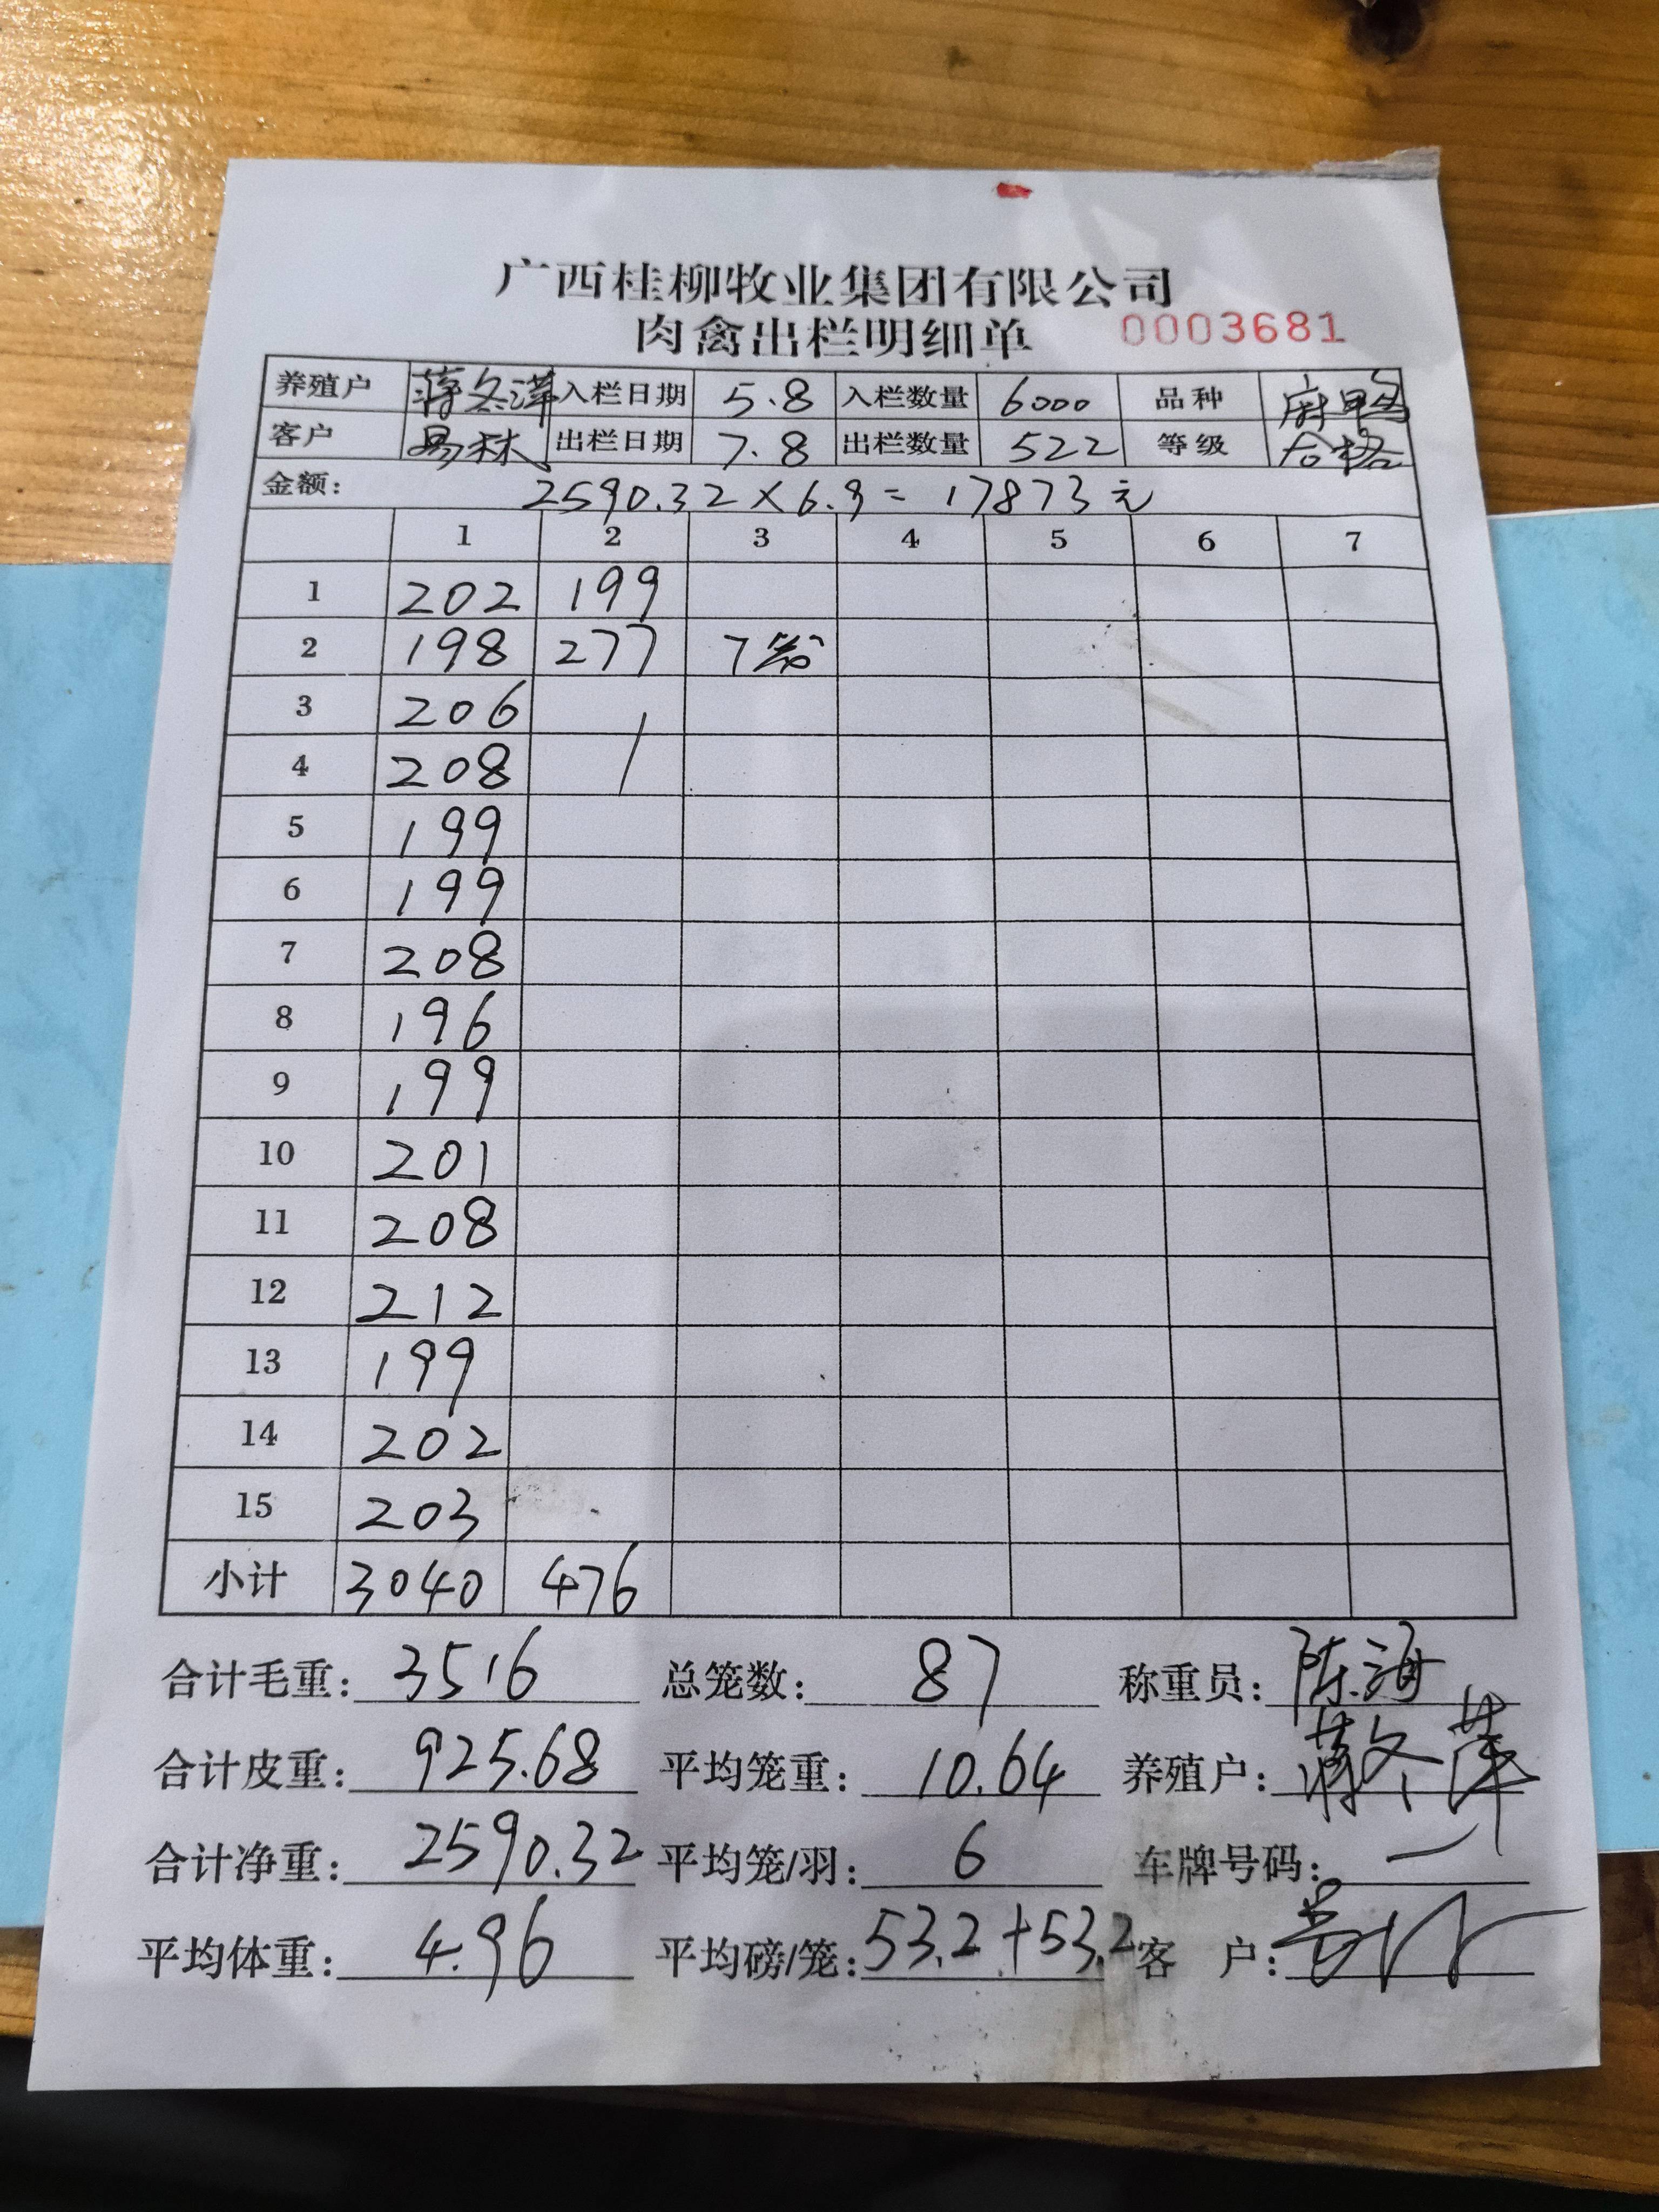 广西桂柳牧业集团有限公司
肉禽出栏明细单 0003681
养殖户 蒋冬萍 入栏日期 5.8 入栏数量 6000 品种 麻鸭
客户 易林 出栏日期 7.8 出栏数量 522 等级 合格
金额: 2590.32×6.9=17873元
1 2 3 4 5 6 7
1 202 199
2 198 277 7
3 206
4 208
5 199
6 199
7 208
8 196
9 199
10 201
11 208
12 212
13 199
14 202
15 203
小计 3040 476
合计毛重: 3516 总笼数: 87 称重员: 陈海
合计皮重: 925.68 平均笼重: 10.64 养殖户: 蒋冬萍
合计净重: 2590.32 平均笼/羽: 6 车牌号码: 一
平均体重: 4.96 平均磅/笼: 53.2+53.2 客 户: